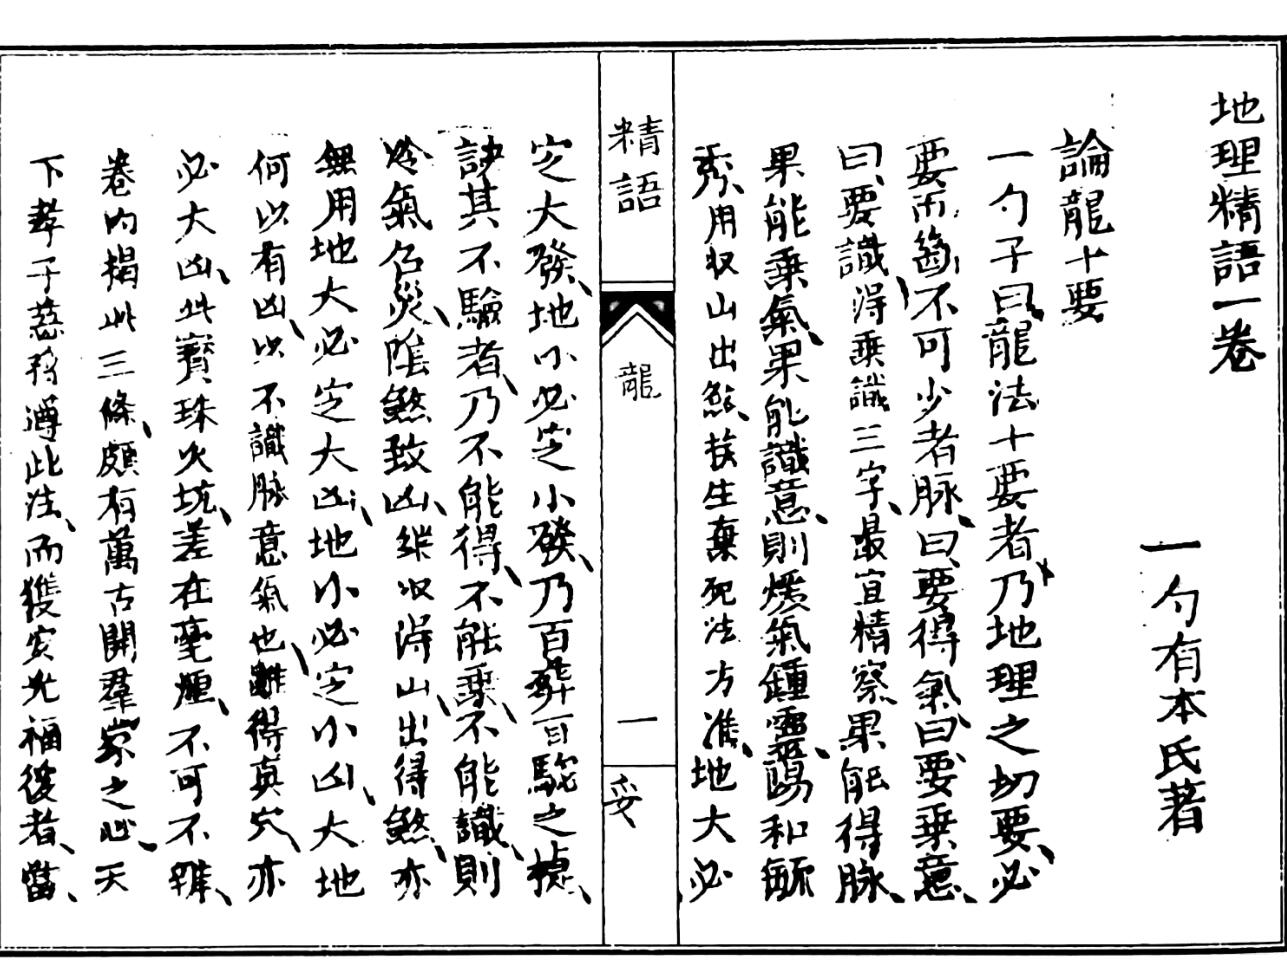 地理精語一卷
一勺有本氏著
論龍十要
一勺子曰龍法十要者乃地理之切要必
要而不可少者脉曰要得氣曰要乘意
曰要識得乘識三字最宜精察果能得脉
果能乘氣果能識意則煖氣鍾靈陽和毓
秀用收山出煞扶生棄死法方准地大必
定大發地小必定小發乃百葬百驗之
訣其不驗者乃不能得不能乘不能識則
冷氣召災陰煞致凶縱收得山出得煞亦
無用地大必定大凶地小必定小凶大地
何以有凶以不識脉意氣也雖得真穴亦
必大凶此寶珠火坑差在毫厘不可不辨
卷內揭此三條頗有萬古開羣蒙之心天
下孝子慈孫遵此法而獲安先福後者當
精語
龍
一